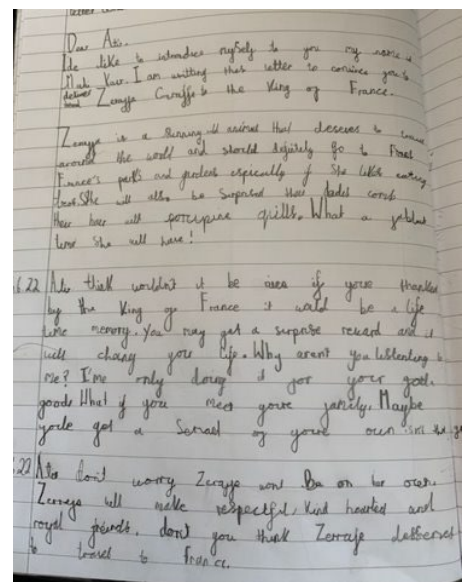 Dear Atir.
I'de like to introduce myself to you my name is
Kaur. I am writting this letter to convince you to
deliver Zeraffe Giraffe to the King of France.
Zeraffe is a stunning animal that deserves to travel
around the world and should definitely go to
France's parks and gardens especially if she likes eating
She will also be surprised how ladies comb
their hair with porcupine quills. What a
time she will have!
6.22 Atir think wouldn't it be nice if youre thanked
by the King of France it would be a life
time memory. You may get a surprise reward and it
will chang your life. Why arent you listening to
me? I'me only doing it for your
goods What if you meet youre family. Maybe
youle get a of youre own isn't that
.22 Atir don't worry Zeraffe wont Be on her own.
Zeraffe will make respectful, kind hearted and
royal friends. don't you think Zerrafe deserves
to travel to France.